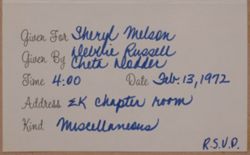 Given For Sheryl Melson
Debbie Russell
Given By Cheta Dadder
Time 4:00 Date Feb. 13, 1972
Address EK Chapter room
Kind Miscellaneous
R.S.V.P.